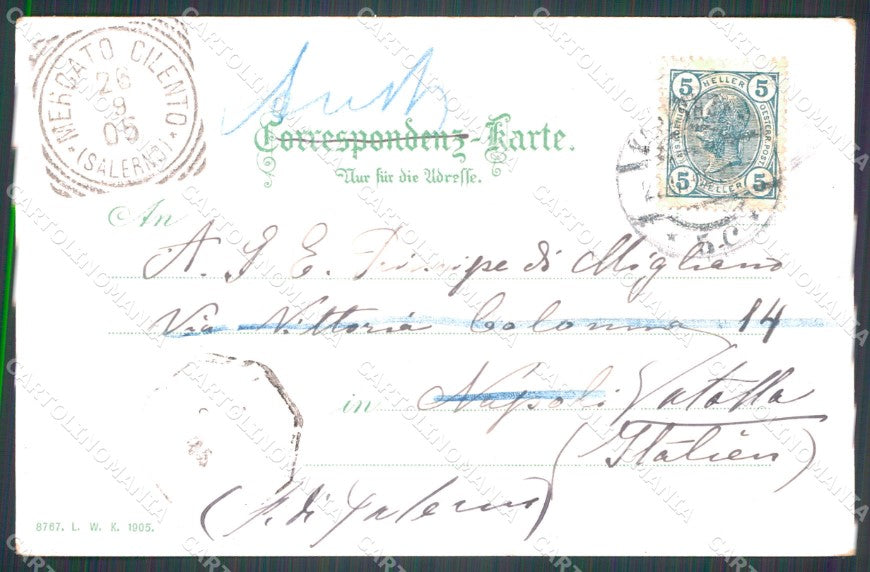 MERCATO CILENTO
26
9
05
(SALERNO)
Aust
5 HELLER 5
5 HELLER 5
Correspondenz-Karte.
Nur für die Adresse.
5.C
An
A. S. E. Principe di Migliano
Via Vittoria Colonna 14
in Napoli Vatolla
(Italien)
(P. di Salerno)
8767. L. W. K. 1905.
CARTOLINOMANIA